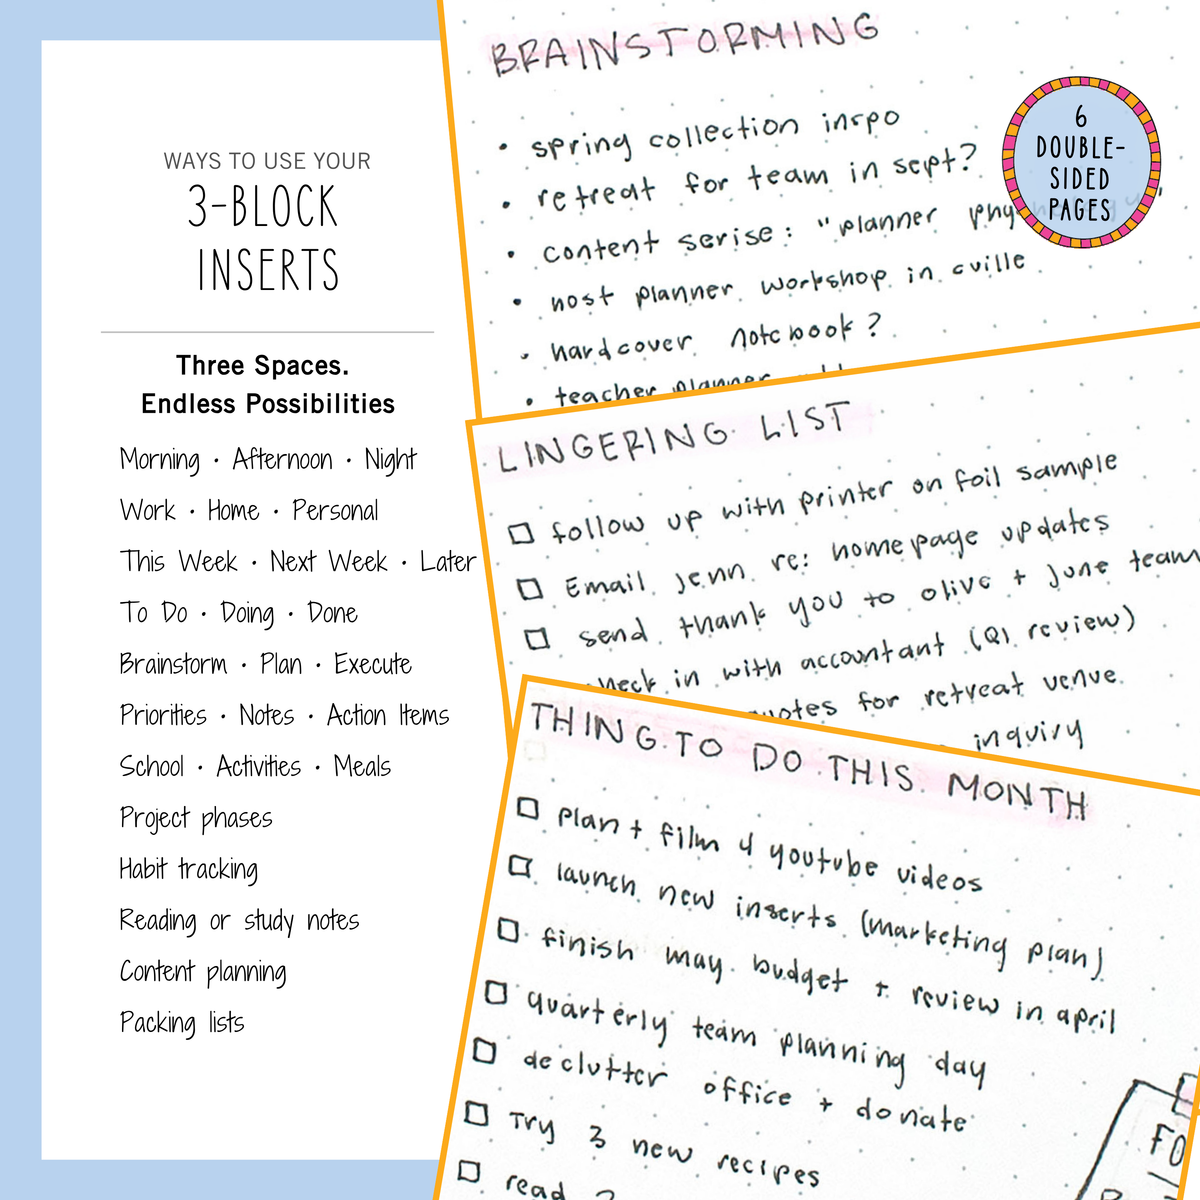 WAYS TO USE YOUR
3-BLOCK
INSERTS
Three Spaces.
Endless Possibilities
Morning • Afternoon • Night
Work • Home • Personal
This Week • Next Week • Later
To Do • Doing • Done
Brainstorm • Plan • Execute
Priorities • Notes • Action Items
School • Activities • Meals
Project phases
Habit tracking
Reading or study notes
Content planning
Packing lists
BRAINSTORMING
• spring collection inspo
• retreat for team in sept?
• content serise: "planner
• host planner workshop in cville
• hardcover notebook?
• teacher planner
6
DOUBLE-
SIDED
PAGES
LINGERING LIST
follow up with printer on foil sample
Email jenn re: homepage updates
send thank you to olive + june team
in with accountant (Q1 review)
for retreat venue
inquiry
THING TO DO THIS MONTH
plan + film 4 youtube videos
launch new inserts (marketing plan)
finish may budget + review in april
quarterly team planning day
declutter office + donate
Try 3 new recipes
read
FO